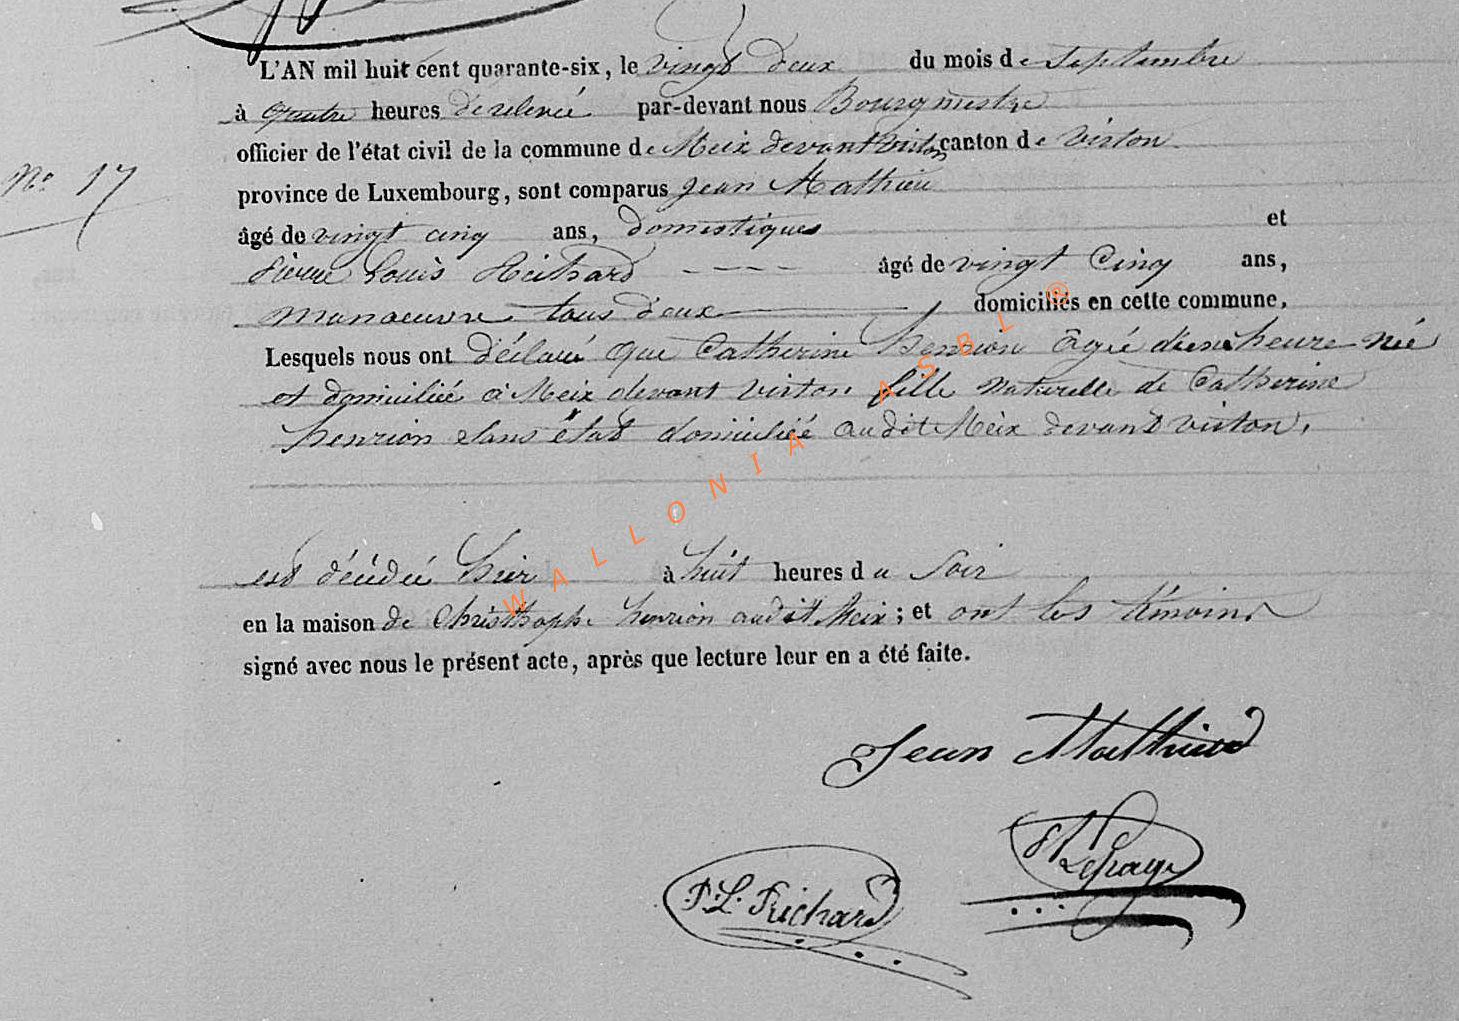 L'AN mil huit cent quarante-six, le vingt deux du mois de Septembre
à quatre heures de relevée par-devant nous Bourgmestre
officier de l'état civil de la commune de Meix devant virton canton de virton
N° 17
province de Luxembourg, sont comparus Jean Mathieu
âgé de vingt cinq ans, domestiques et
Pierre Louis Richard ---- âgé de vingt Cinq ans,
manoeuvre tous deux domiciliés en cette commune,
Lesquels nous ont déclaré que Catherine henrion âgé d'une heure née
et domiciliée à Meix devant virton, fille naturelle de Catherine
henrion sans état domiciliée audit Meix devant virton,
est décédée hier à huit heures du soir
en la maison de Christhophe henrion audit Meix; et ont les témoins
signé avec nous le présent acte, après que lecture leur en a été faite.
WALLONIA ASBL ®
Jean Mathieu
Lepage
P. L. Richard